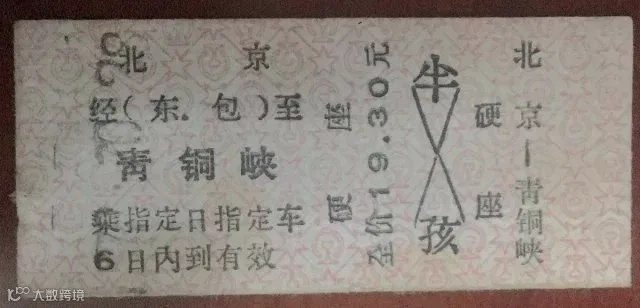 北京
经(东.包)至
青铜峡
乘指定日指定车
6日内到有效
硬座
全价19.30元
半孩
硬座
北京—青铜峡
大数跨境